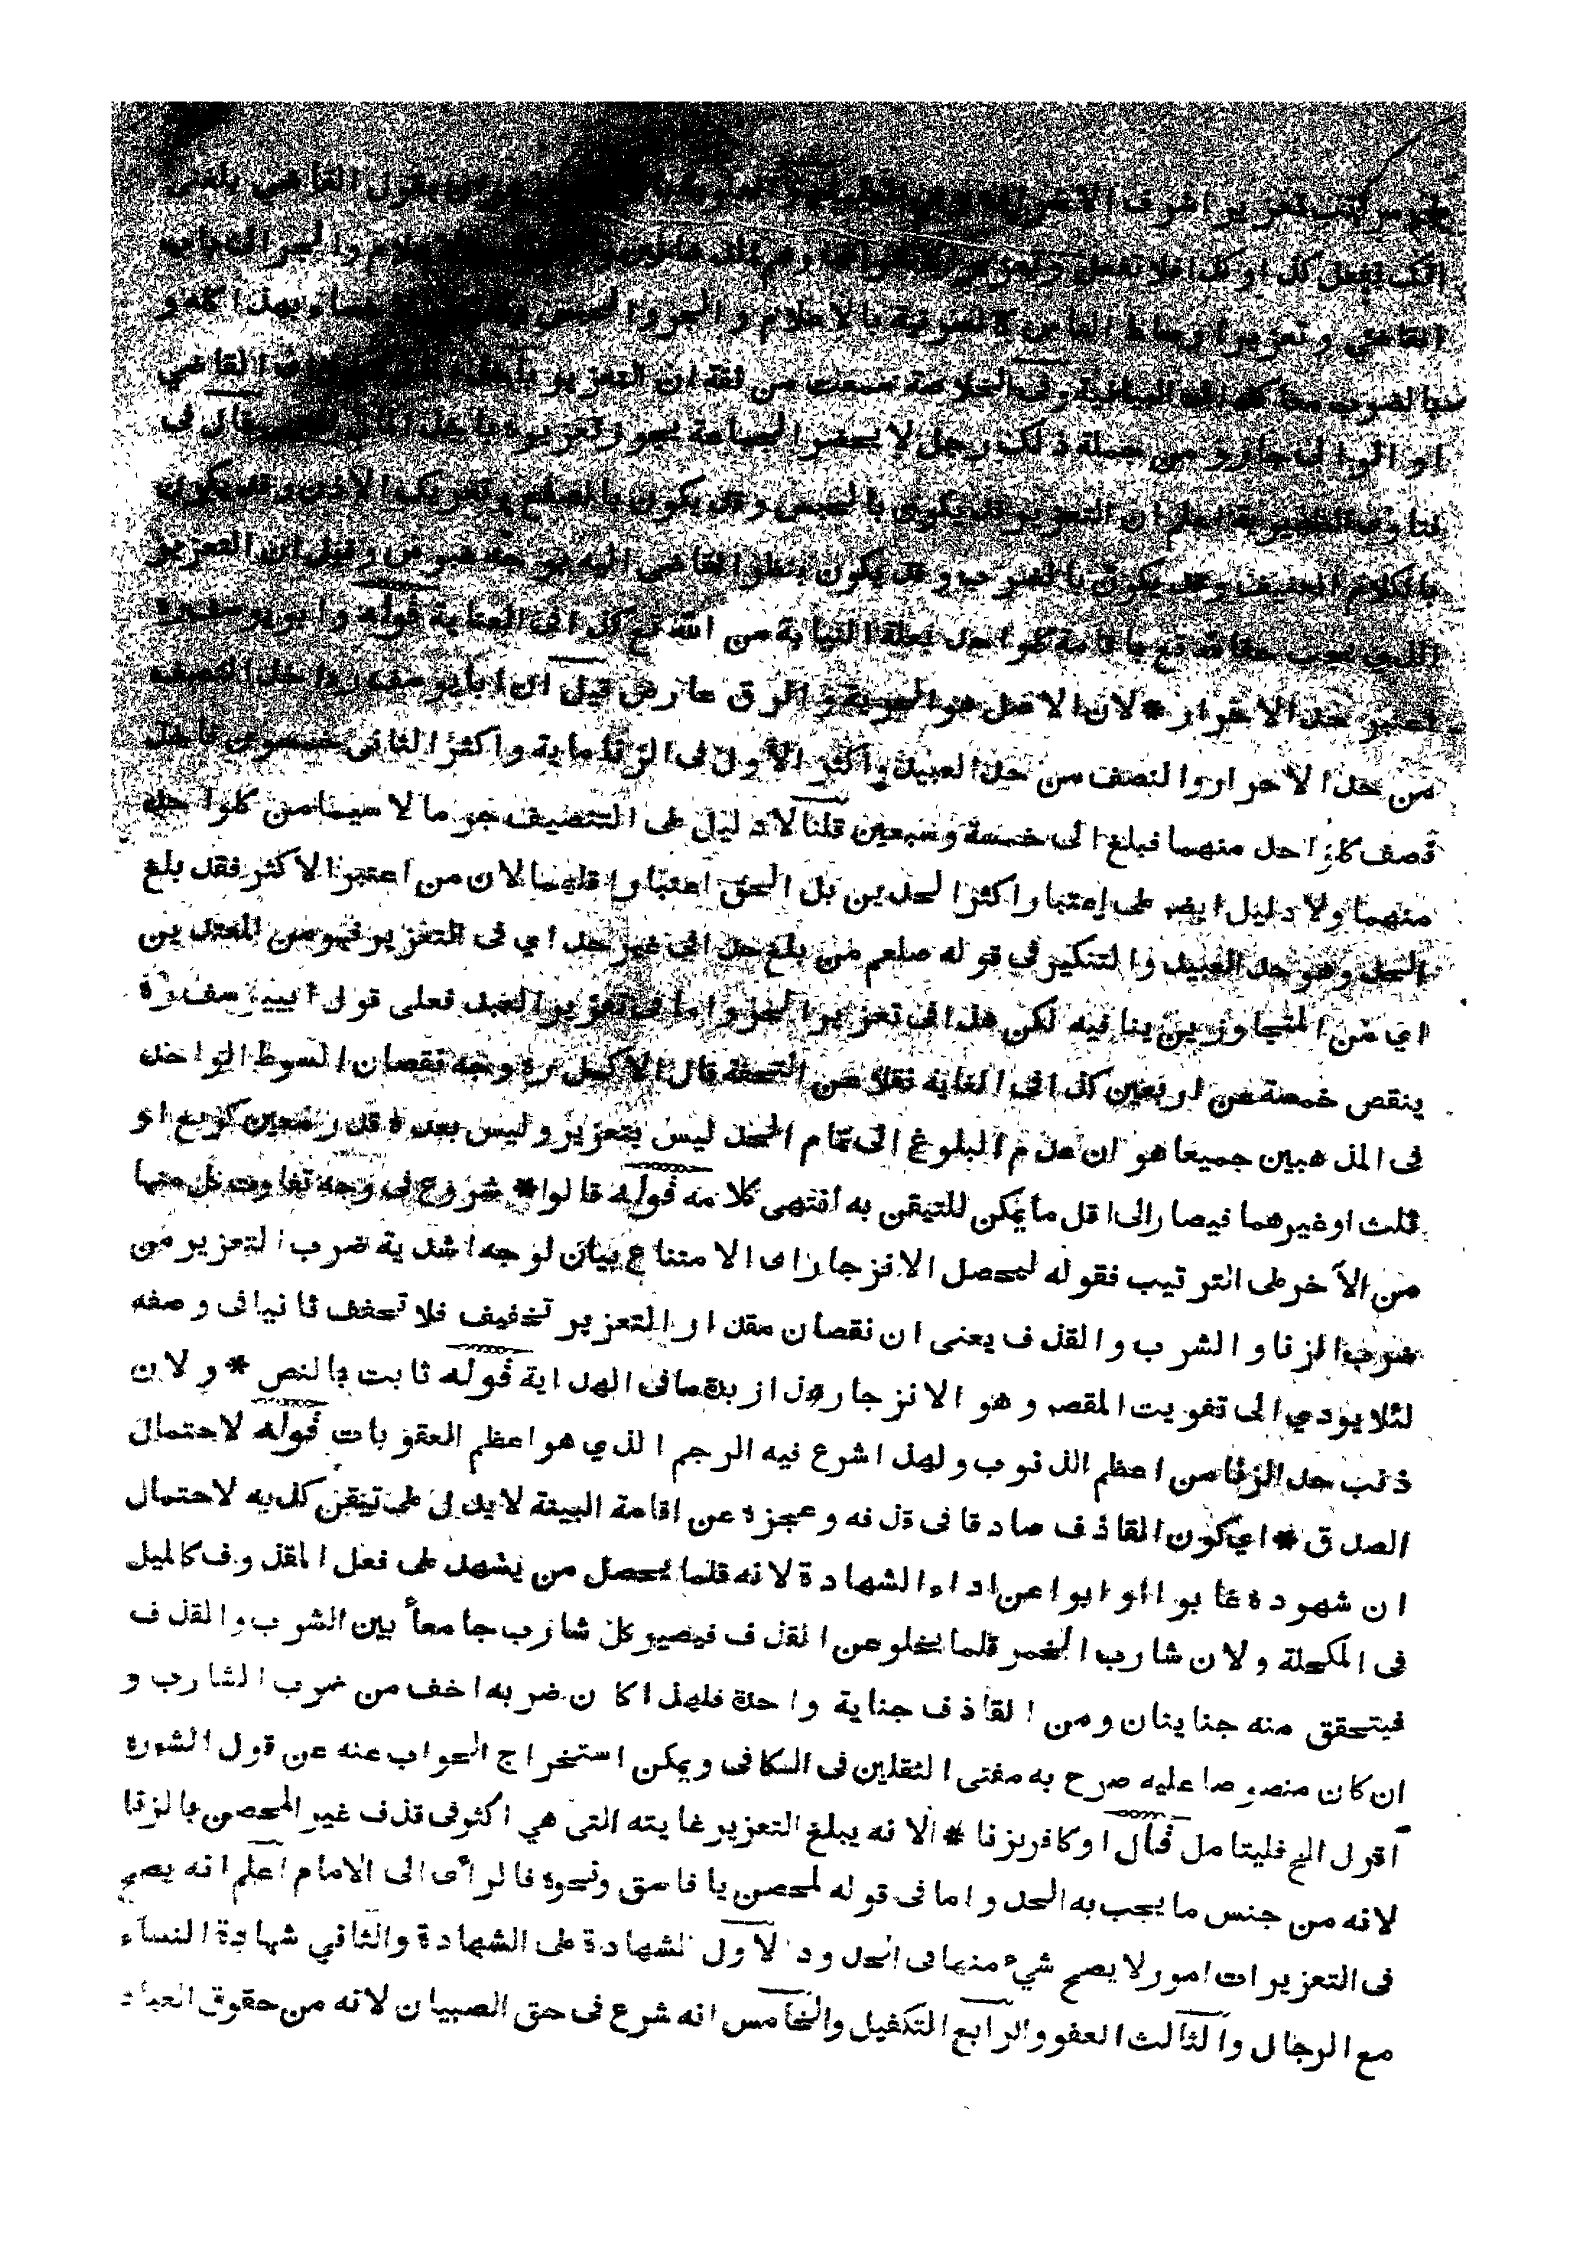 مراتب تعزير اشراف الاشراف يقول القاضي بلغني
انك تفعل كذا وكذا فلا تفعل وتعزير الاعلام والجر الى باب
القاضي وتعزير اوساط الناس السوقية بالاعلام والجر والحبس بهذا كله و
بالضرب وفى الخلاصة سمعت من ثقة ان التعزير القاضي
او الوالى جاز ومن جملة ذلك رجل لا يحضر الجماعة يجوز تعزيره باخذ المال قال فى
فتاوى الظهيرية اعلم ان التعزير قد يكون بالحبس وقد يكون بالصفع وتعريك الاذن وقد يكون
بالكلام العنيف وقد يكون بالضرب وقد يكون بنظر القاضى اليه بوجه عبوس وقيل ان التعزير
الذي يجب حقا لله تع كلواحد بعلة النيابة من الله تع كذا فى العناية قوله وابو يوسف ره
اعتبر حد الاحرار * لان الاصل هو الحرية والرق عارض قيل ان ابا يوسف ره اخذ النصف
من حد الاحرار والنصف من حد العبيد واكثر الاول فى الزنا ماية واكثر الثانى خمسون فاخذ
نصف كلواحد منهما فبلغ الى خمسة وسبعين قلنا لا دليل على التنصيف جزما لا سيما من كلواحد
منهما ولا دليل ايضا على اعتبار اكثر الحدين بل الحق اعتبار اقلهما لان من اعتبر الاكثر فقد بلغ
الحد وهو حد العبيد والتنكير في قوله صلعم من بلغ حد افى غير حد اي فى التعزير فهو من المعتدين
اي من المتجاوزين ينافيه لكن هذا فى تعزير الحر واما فى تعزير العبد فعلى قول ابييوسف رة
ينقص خمسة من اربعين كذا فى الغاية نقلا عن التحفة قال الاكمل ره وجه نقصان السوط الواحد
فى المذهبين جميعا هو ان عدم البلوغ الى تمام الحد ليس بتعزير وليس بعده قدر معين كربع او
ثلث اوغيرهما فيصار الى اقل ما يمكن للتيقن به انتهى كلامه قوله قالوا * شروع فى وجه تفاوت كل منها
من الآخر على الترتيب فقوله ليحصل الانزجار اى الامتناع بيان لوجه اشدية ضرب التعزير من
ضرب الزنا والشرب والقذف يعنى ان نقصان مقدار التعزير تخفيف فلا تخفف ثانيا فى وصفه
لئلا يودي الى تفويت المقصود وهو الانزجار هذا زبدة ما فى الهداية قوله ثابت بالنص * ولان
ذنب حد الزنا من اعظم الذنوب ولهذا شرع فيه الرجم الذي هو اعظم العقوبات قوله لاحتمال
الصدق * اي كون القاذف صادقا فى قذفه وعجزه عن اقامة البينة لا يدل على تيقن كذبه لاحتمال
ان شهوده غابوا او ابوا عن اداء الشهادة لانه قلما يحصل من يشهد على فعل المقذوف كالميل
فى المكحلة ولان شارب الخمر قلما يخلو عن القذف فيصير كل شارب جامعا بين الشرب والقذف
فيتحقق منه جنايتان ومن القاذف جناية واحدة فلهذا كان ضربه اخف من ضرب الشارب و
ان كان منصوصا عليه صرح به مفتى الثقلين فى الكافى ويمكن استخراج الجواب عنه عن قول الشيوره
اقول الخ فليتامل قال او كافر بزنا * الا نه يبلغ التعزير غايته التى هي اكثر فى قذف غير المحصن بالزنا
لانه من جنس ما يجب به الحد واما فى قوله لمحصن يا فاسق ونحوه فالرأى الى الامام اعلم انه يصح
فى التعزيرات امور لا يصح شيء منها فى الحدود الاول الشهادة على الشهادة والثاني شهادة النساء
مع الرجال والثالث العفو والرابع التكفيل والخامس انه شرع فى حق الصبيان لانه من حقوق العباد